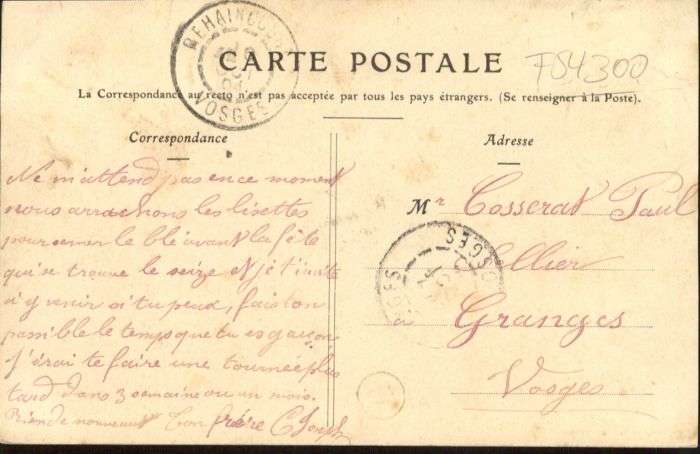 REHAINCOURT
VOSGES
CARTE POSTALE
784300
La Correspondance au recto n'est pas acceptée par tous les pays étrangers. (Se renseigner à la Poste).
Correspondance
Adresse
Ne m'attend pas en ce moment
nous arrachons les lisettes
pour semer le blé avant la fête
qui se trouve le seize et je t'invite
a y venir si tu peux, fais ton
possible le temps que tu es garçon
J'érai te faire une tournée plus
tard dans 3 semaine ou un mois.
Rien de nouveau ton frére C Joseph
Mr Cosserat Paul
Sellier
Granges
Vosges
GRANGES
VOSGES